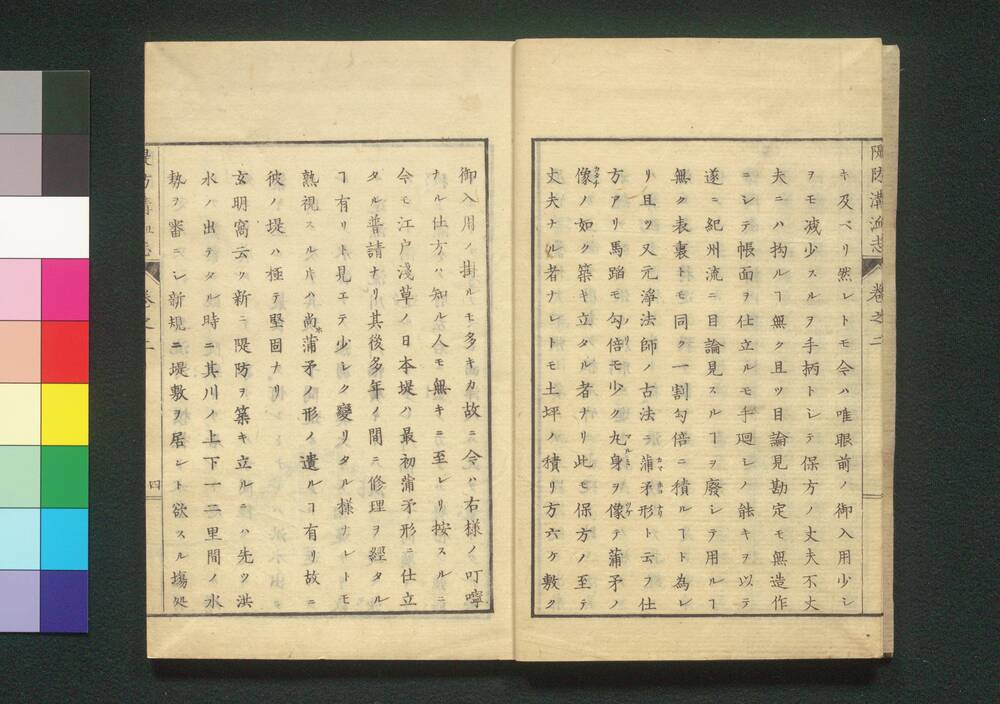 隄防溝洫志 卷之二
キ及ベリ然レトモ今ハ唯眼前ノ御入用少シ
ヲモ减少スルヲ手柄トシテ保方ノ丈夫不丈
夫ニハ拘ルヿ無ク且ツ目論見勘定モ無造作
ニシテ帳面ヲ仕立ルモ手廻シノ能キヲ以テ
遂ニ紀州流ニ目論見スルヿヲ廢シテ用ルヿ
無ク表裏トモ同ク一割勾倍ニ積ルヿト為レ
リ且ツ又元淨法師ノ古法ニ蒲矛形ト云フ仕
方アリ馬踏モ勾倍モ少ク丸身ヲ像テ蒲矛ノ
像ノ如ク築キ立タル者ナリ此モ保方ノ至テ
丈夫ナル者ナレトモ土坪ノ積リ方六ケ敷ク
御入用ノ掛ルモ多キカ故ニ今ハ右樣ノ叮嚀
ナル仕方ハ知ル人モ無キニ至レリ按スルニ
今モ江戸淺草ノ日本堤ハ最初蒲矛形ニ仕立
タル普請ナリ其後多年ノ間ニ修理ヲ經タル
ヿ有リト見エテ少レク變リタル樣ナレトモ
熟視スルキハ尚蒲矛ノ形ノ遺ルヿ有リ故ニ
彼ノ堤ハ極テ堅固ナリ
玄明窩云ク新ニ隄防ヲ築キ立ルニハ先ツ洪
水ノ出テタル時ニ其川ノ上下一二里間ノ水
勢ヲ審ニシ新規ニ堤敷ヲ居シト欲スル塲処
卷之二
四